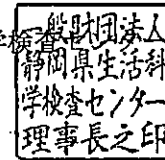 学検査セ
一般財団法人
静岡県生活科
学検査センター
理事長之印